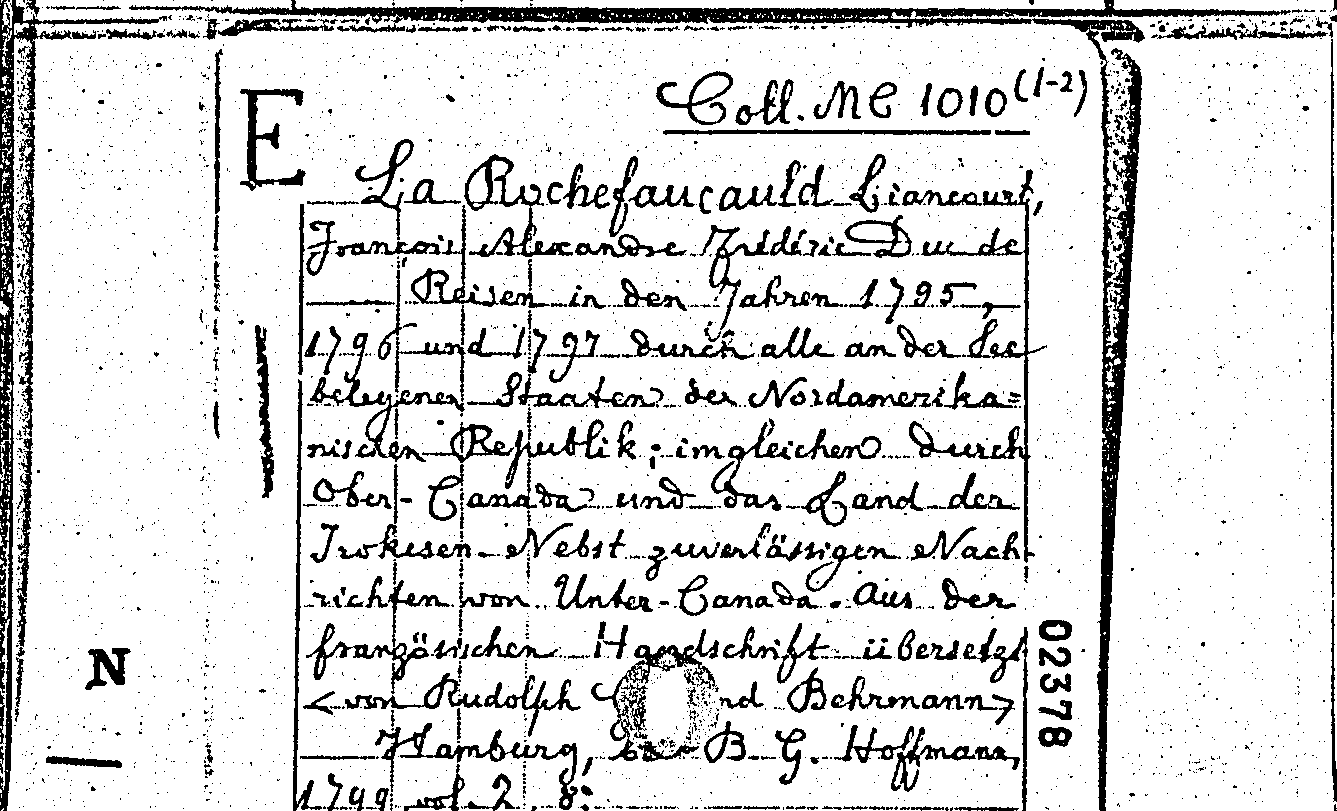 E
Coll. MC 1010 (1-2)
La Rochefaucauld Liancourt,
François Alexandre Frédéric Duc de
—— Reisen in den Jahren 1795,
1796 und 1797 durch alle an der See
belegenen Staaten der Nordamerika=
nischen Republik; imgleichen durch
Ober-Canada und das Land der
Irokesen. Nebst zuverlässigen Nach-
richten von Unter-Canada. Aus der
französischen Handschrift übersetzt
<von Rudolph nd Behrmann>
Hamburg, B. G. Hoffmann,
1799 vol. 2. 8:
02378
N